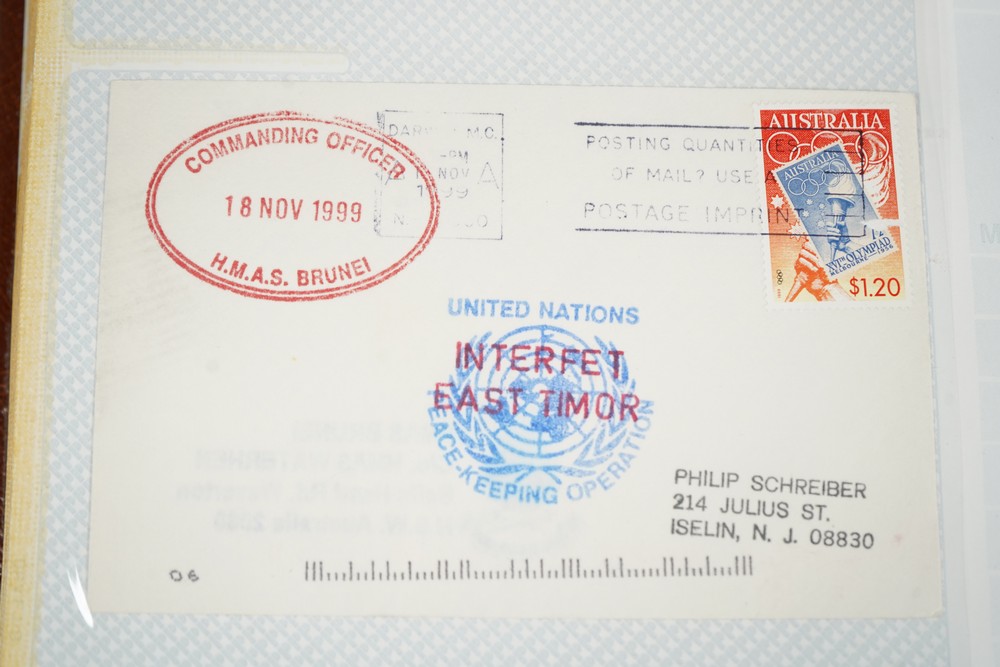 COMMANDING OFFICER
18 NOV 1999
H.M.A.S. BRUNEI
M.C.
PM
A NOV A
POSTING QUANTITIES
OF MAIL? USE A
POSTAGE IMPRINT
AUSTRALIA
AUSTRALIA
XVITH OLYMPIAD
MELBOURNE 1956
$1.20
UNITED NATIONS
INTERFET
EAST TIMOR
PEACE-KEEPING OPERATION
PHILIP SCHREIBER
214 JULIUS ST.
ISELIN, N. J. 08830
06